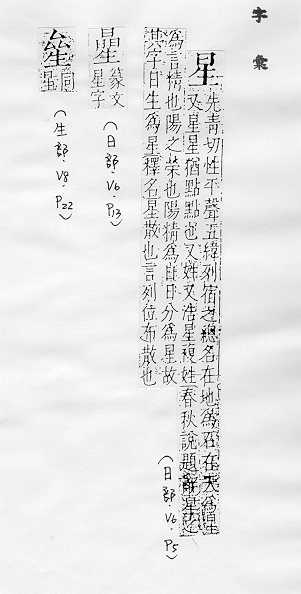 字彙
星
先青切性平聲五緯列宿之總名在地為石在天為星
又星星猶點點也又姓又浩星複姓春秋說題辭星之
為言精也陽之榮也陽精為日日分為星故
其字日生為星釋名星散也言列位布散也
(日部.V6.P5)
曐
篆文
星字
(日部.V6.P13)
同
(生部.V8.P22)